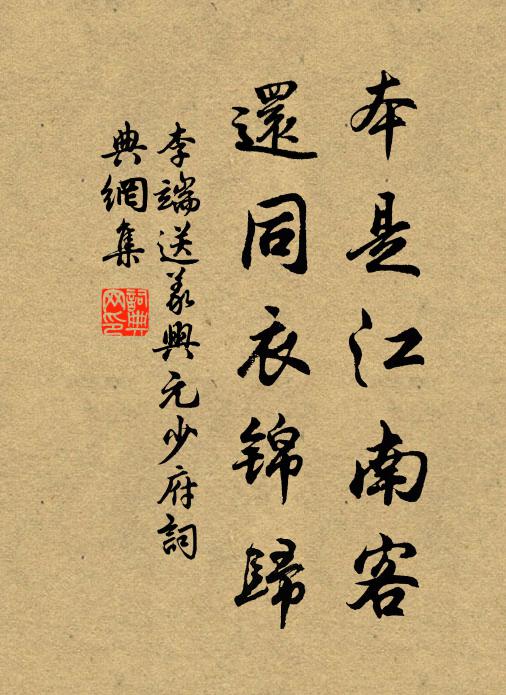 本是江南客
還同衣錦歸
李端送義興元少府詞
典網集
詞典
网印